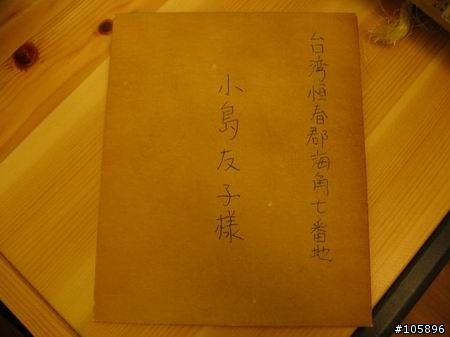 台湾恒春郡海角七番地
小島友子様
#105896